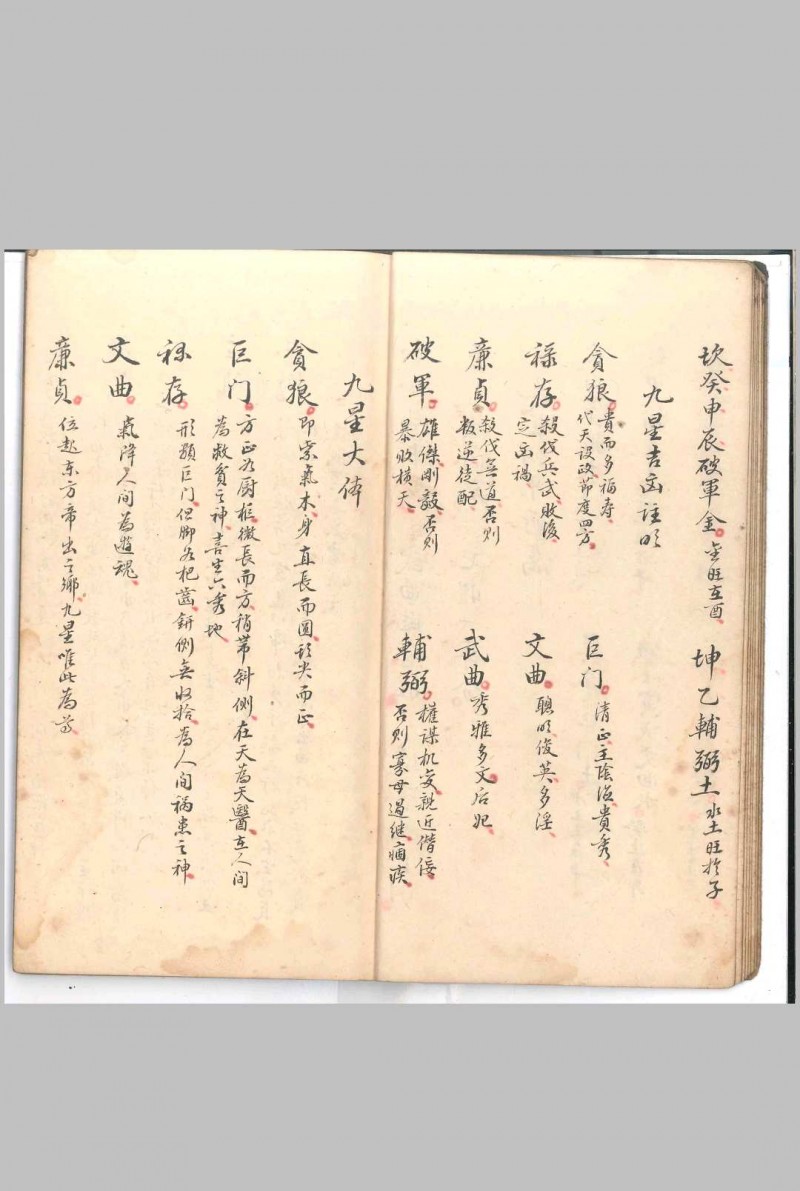 坎癸申辰破軍金 金旺在酉 坤乙輔弼土 水土旺於子
九星吉凶註明
貪狼 貴而多福寿 代天設政節度四方 巨门 清正主陰谥貴秀
祿存 殺伐兵武敗後 定凶禍 文曲 聰明俊英多淫
廉貞 殺伐無道否則 叛逆徒配 武曲 秀雅多文后妃
破軍 雄傑剛毅否則 暴敗横夭 輔弼 權謀机变親近僭佞 否則寡母過继痼疾
九星大体
貪狼 即紫氣木身直長而圓頭尖而正
巨门 方正如厨柜微長而方稍带斜側在天為天醫在人间 為救貧之神喜生六秀地
祿存 形類巨门但脚如杷齒斜側無收拾為人间祸患之神
文曲 氣降人间為遊魂
廉貞 位起东方帝出之鄉九星唯此為首